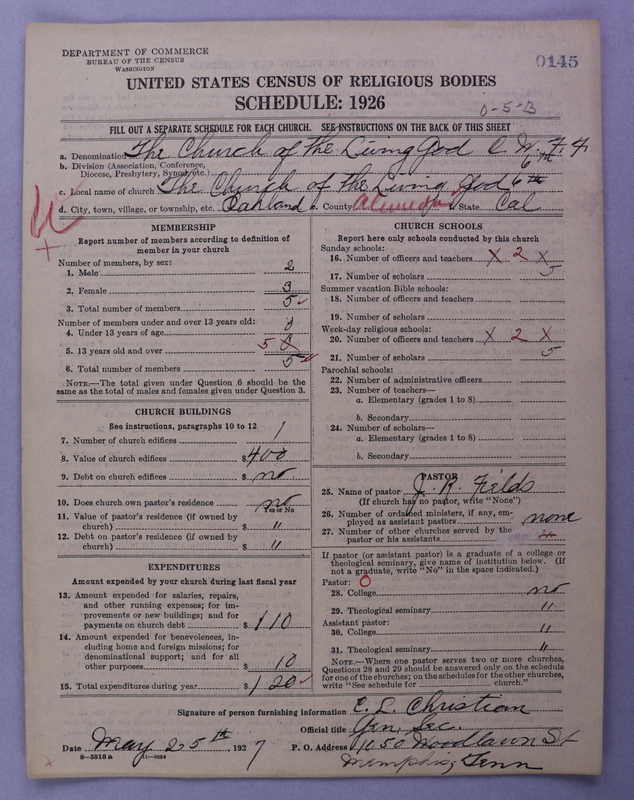 DEPARTMENT OF COMMERCE
BUREAU OF THE CENSUS
WASHINGTON
0145
UNITED STATES CENSUS OF RELIGIOUS BODIES
SCHEDULE: 1926
0-5-B
FILL OUT A SEPARATE SCHEDULE FOR EACH CHURCH. SEE INSTRUCTIONS ON THE BACK OF THIS SHEET
a. Denomination The Church of the Living God C. W. F. F.
b. Division (Association, Conference, Diocese, Presbytery, Synod, etc.) 6th
c. Local name of church The Church of the Living God 6th
d. City, town, village, or township, etc. Oakland e. County Alameda f. State Cal
MEMBERSHIP
Report number of members according to definition of
member in your church
Number of members, by sex:
1. Male 2
2. Female 3
3. Total number of members 5
Number of members under and over 13 years old:
4. Under 13 years of age
5. 13 years old and over 5
6. Total number of members 5
NOTE.—The total given under Question 6 should be the
same as the total of males and females given under Question 3.
CHURCH BUILDINGS
See instructions, paragraphs 10 to 12
7. Number of church edifices 1
8. Value of church edifices $400
9. Debt on church edifices $ no
10. Does church own pastor's residence no
Yes or No
11. Value of pastor's residence (if owned by
church) $ "
12. Debt on pastor's residence (if owned by
church) $ "
EXPENDITURES
Amount expended by your church during last fiscal year
13. Amount expended for salaries, repairs,
and other running expenses; for im-
provements or new buildings; and for
payments on church debt $110
14. Amount expended for benevolences, in-
cluding home and foreign missions; for
denominational support; and for all
other purposes $ 10
15. Total expenditures during year $120
CHURCH SCHOOLS
Report here only schools conducted by this church
Sunday schools:
16. Number of officers and teachers X 2 X
17. Number of scholars 5
Summer vacation Bible schools:
18. Number of officers and teachers
19. Number of scholars
Week-day religious schools:
20. Number of officers and teachers X 2 X
21. Number of scholars 5
Parochial schools:
22. Number of administrative officers
23. Number of teachers—
a. Elementary (grades 1 to 8)
b. Secondary
24. Number of scholars—
a. Elementary (grades 1 to 8)
b. Secondary
PASTOR
25. Name of pastor J. R. Fields
(If church has no pastor, write "None")
26. Number of ordained ministers, if any, em-
ployed as assistant pastors none
27. Number of other churches served by the
pastor or his assistants
If pastor (or assistant pastor) is a graduate of a college or
theological seminary, give name of institution below. (If
not a graduate, write "No" in the space indicated.)
Pastor: 0
28. College no
29. Theological seminary "
Assistant pastor:
30. College "
31. Theological seminary "
NOTE.—Where one pastor serves two or more churches,
Questions 28 and 29 should be answered only on the schedule
for one of the churches; on the schedules for the other churches,
write "See schedule for church."
Signature of person furnishing information E. L. Christian
Official title Gen. Sec.
Date May 25th, 1927 P. O. Address 1050 Woodlawn St
8-5518a 11-9084 Memphis, Tenn